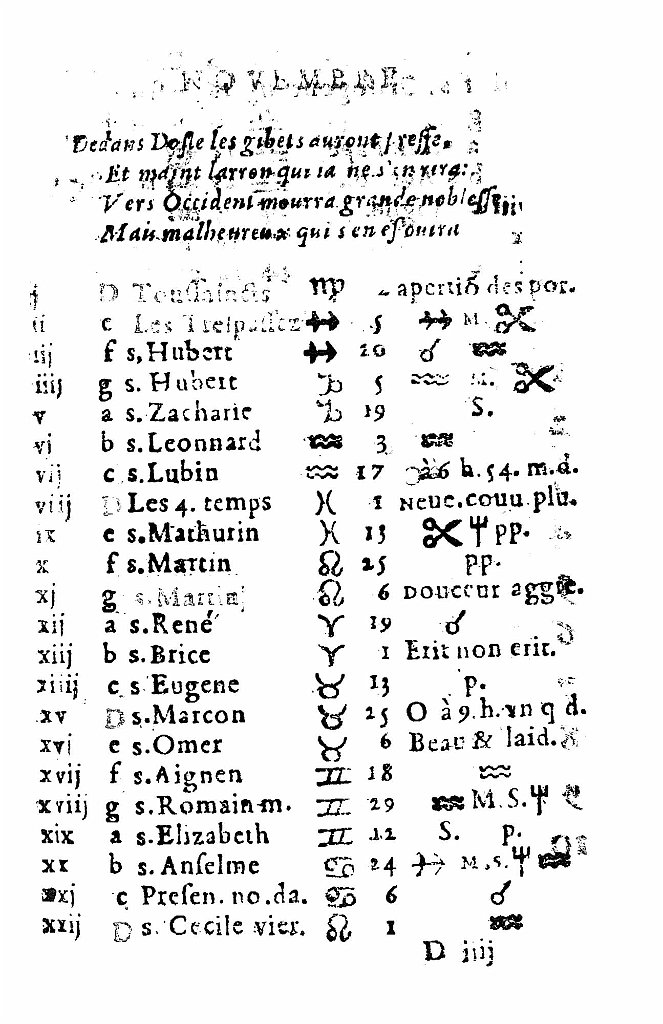 NOVEMBRE
Dedans Dosle les gibets auront presse,
Et maint larron qui ia ne s'en rira:
Vers Occident mourra grande noblesse
Mais malheureux qui s en esouira
j D Toussaincts ♍ apertiõ des por.
ii e Les Trespassez ♐ 5 ♐ M. ✂
iij f s, Hubert ♐ 20 ☌ ♒
iiij g s. Hubert ♑ 5 ♒ M. ✂
v a s. Zacharie ♑ 19 S.
vj b s. Leonnard ♒ 3 ♒
vij c s. Lubin ♒ 17 à 6 h. 54. m.d.
viij D Les 4. temps ♓ 1 Neue. couu. plu.
ix e s. Mathurin ♓ 13 ✂ Ψ PP.
x f s. Martin ♌ 25 PP.
xj g s. Martin ♌ 6 Douceur aggre.
xij a s. René ♈ 19 ☌
xiij b s. Brice ♈ 1 Erit non erit.
xiiij c s Eugene ♉ 13 p.
xv D s. Marcon ♉ 25 O à 9. h. xn q d.
xvj e s. Omer ♉ 6 Beau & laid.
xvij f s. Aignen ♊ 18 ♒
xviij g s. Romain m. ♊ 29 ♒ M. S. Ψ
xix a s. Elizabeth ♊ 12 S. p.
xx b s. Anselme ♋ 24 ♐ M. S. Ψ ♒
xxj c Presen. no. da. ♋ 6 ☌
xxij D s. Cecile vier. ♌ 1 ♒
D iiij